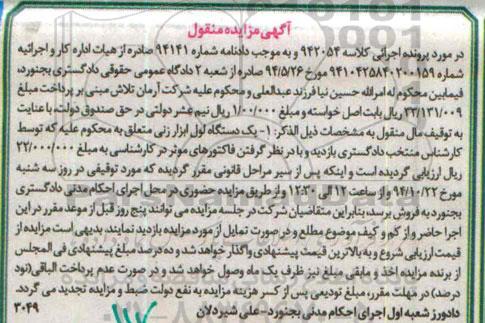 آگهی مزایده منقول
در مورد پرونده اجرائی کلاسه ۹۴۲۰۵۴ و به موجب دادنامه شماره ۹۴۱۴۱ صادره از هیات اداره کار و اجرائیه
شماره ۹۴۱۰۴۲۵۸۴۰۲۰۰۱۵۹ مورخ ۹۴/۵/۲۶ صادره از شعبه ۲ دادگاه عمومی حقوقی دادگستری بجنورد،
فیمابین محکوم له امرالله حسین نیا فرزند عبدالعلی و محکوم علیه شرکت آرمان تلاش مبنی بر پرداخت مبلغ
۳۲/۱۳۱/۰۰۹ ریال بابت اصل خواسته و مبلغ ۱/۰۰/۰۰۰ ریال نیم عشر دولتی در حق صندوق دولت، با عنایت
به توقیف مال منقول به مشخصات ذیل الذکر: ۱- یک دستگاه لول ابزار زنی متعلق به محکوم علیه که توسط
کارشناس منتخب دادگستری بازدید و با در نظر گرفتن فاکتورهای موثر در کارشناسی به مبلغ ۲۲/۰۰۰/۰۰۰
ریال ارزیابی گردیده است و اینکه پس از سیر مراحل قانونی مقرر گردیده که مورد توقیفی در روز سه شنبه
مورخ ۹۴/۱۰/۲۲ و از ساعت ۱۲ الی ۱۲:۳۰ و از طریق مزایده حضوری در محل اجرای احکام مدنی دادگستری
بجنورد به فروش برسد، بنابراین متقاضیان شرکت در جلسه مزایده می توانند پنج روز قبل از موعد مقرر در این
اجرا حاضر و از کم و کیف موضوع مطلع و در صورت تمایل از مورد مزایده بازدید نمایند، بدیهی است مزایده از
قیمت ارزیابی شروع و به بالاترین قیمت پیشنهادی واگذار خواهد شد و ده درصد مبلغ پیشنهادی فی المجلس
از برنده مزایده اخذ و مابقی مبلغ نیز ظرف یک ماه وصول خواهد شد و در صورت عدم پرداخت الباقی (نود
درصد) در مهلت مقرر، مبلغ تودیعی پس از کسر هزینه مزایده به نفع دولت ضبط و مزایده تجدید می گردد.
دادورز شعبه اول اجرای احکام مدنی بجنورد- علی شیردلان ۳۰۴۹